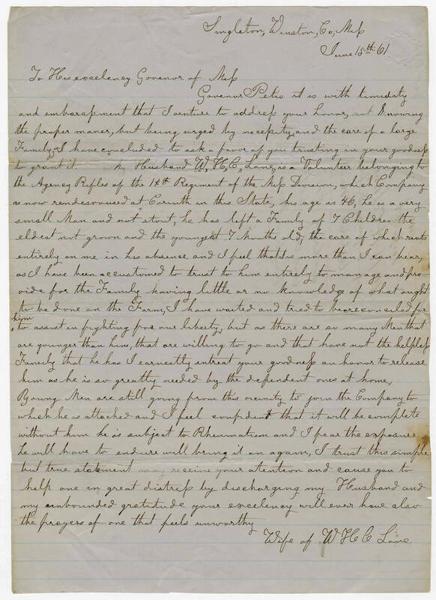 Singleton, Winston, Co, Miss
June 15th /61
To His excelency Govenor of Miss
Govenor Pettus it is with timidity
and embarassment that I venture to address your honor, not knowing
the proper maner, but being urged by necessity and the care of a large
Family, I have concluded to ask a favor of you trusting in your goodness
to grant it My Husband W, H, C, Love, is a Volunteer belonging to
the Agency Rifles of the 14th Regiment of the Miss Division, which Company
is now rendesvoused at Corinth in this State, his age is 46, he is a very
small Man and not stout, he has left a Family of 7 Children the
eldest not grown and the youngest 7 Months old, the care of which rests
entirely on me in his absense and I feel that is more than I can bear,
as I have been accustomed to trust to him entirely to manage and pro-
vide for the Family having little or no knowledge of what ought
to be done on the Farm, I have waited and tried to be consoled for
him
to assist in fighting for our liberty, but as there are so many Men that
are younger than him, that are willing to go and that have not the helpless
Family that he has I earnestly entreat your goodness an honor to release
him as he is so greatly needed by the dependent ones at home,
Young Men are still going from this vicinity to join the Company to
which he is attached and I feel confident that it will be complete
without him he is subject to Rheumatism and I fear the exposure
he will have to endure will bring it on again, I trust this simple
but true statement may receive your atention and cause you to
help one in great distress by discharging my Husband and
my unbounded gratitude your excelency will ever have also
the prayers of one that feels unworthy
Wife of W H C Love